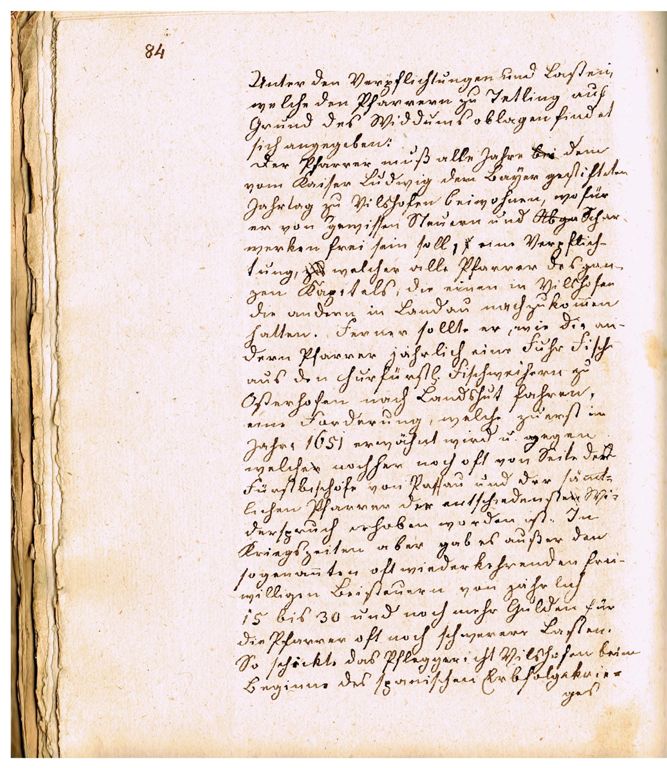 84
Unter den Verpflichtungen und Lasten,
welche den Pfarrern zu Tettling auf
Grund des Widdums oblagen findet
sich angegeben:
Der Pfarrer muß alle Jahre bei dem
vom Kaiser Ludwig dem Bayer gestifteten
Jahrtag zu Vilshofen beiwohnen, wofür
er von gewissen Steuern und Schar
werken frei sein soll, eine Verpflich-
tung, welcher alle Pfarrer des gan-
zen Kapitels, die einen in Vilshofen
die andern in Landau nachzukommen
hatten. Ferner sollte er, wie die an-
dern Pfarrer jährlich eine Fuhr Fisch
aus den churfürstl. Fischweihern zu
Osterhofen nach Landshut fahren,
eine Forderung, welche zuerst im
Jahre 1651 erwähnt wird u. gegen
welche nachher noch oft von Seite der
Fürstbischöfe von Passau und der sämt-
lichen Pfarrer der entschiedenste Wi-
derspruch erhoben worden ist. In
Kriegszeiten aber gab es außer den
sogenannten oft wiederkehrenden frei-
willigen Beisteuern von jährlich
15 bis 30 und noch mehr Gulden für
die Pfarrer oft noch schwerere Lasten.
So schickte das Pfleggericht Vilshofen beim
Beginne des spanischen Erbfolgekrie-
ges